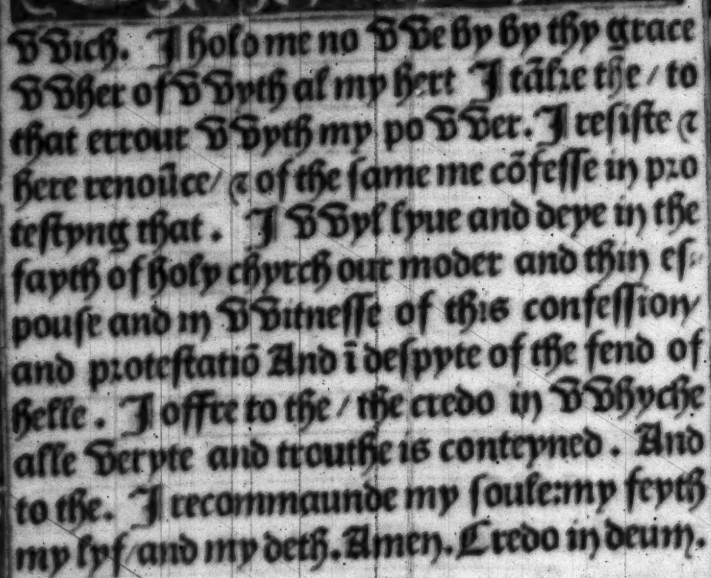 VVich. I holo me no VVe by by thy grace
VVher of VVyth al my hert I tãkze the / to
that errour VVyth my poVVer. I resiste ⁊
here renoũce / ⁊ of the same me cõfesse in pro
testyng that . I VVyl lyue and deye in the
fayth of holy chyrch our moder and thin es⸗
pouse and in VVitnesse of this confession/
and protestatiõ And ĩ despyte of the fend of
helle . I offre to the / the credo in VVhyche
alle veryte and trouthe is conteyned . And
to the. I recommaunde my soule:my feyth
my lyf/and my deth.Amen.Credo in deum.